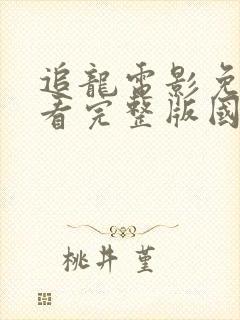 追龍電影免
看完整版國
桃井堇